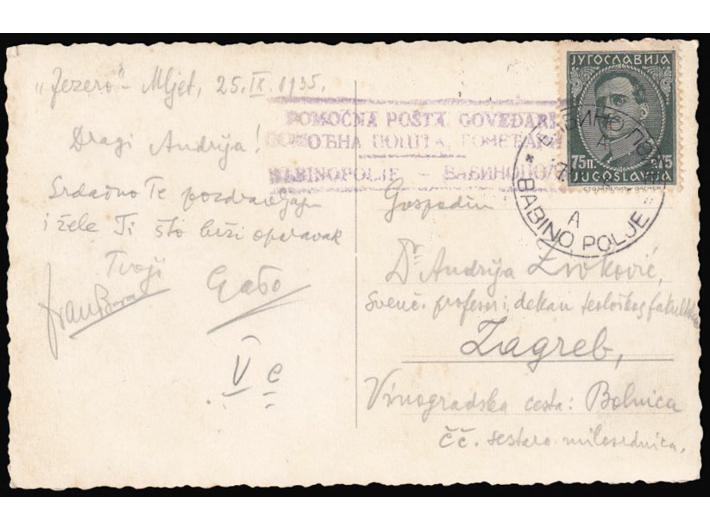 „Jezero“ - Mljet, 25. IX. 1935.
Dragi Andrija!
Srdačno Te pozdravljaju
i žele Ti što brži oporavak
Tvoji
Gabo
V e
POMOĆNA POŠTA GOVEDARI
ПОМОЋНА ПОШТА ГОВЕЂАРИ
BABINOPOLJE - БАБИНОПОЉЕ
ЈУГОСЛАВИЈА
75п. 75
JUGOSLAVIJA
A
BABINO POLJE
Gospodin
Dr Andrija Živković,
Sveuč. profesor i dekan teološkog fakulteta
Zagreb,
Vinogradska cesta: Bolnica
čč. sestara milosrdnica.